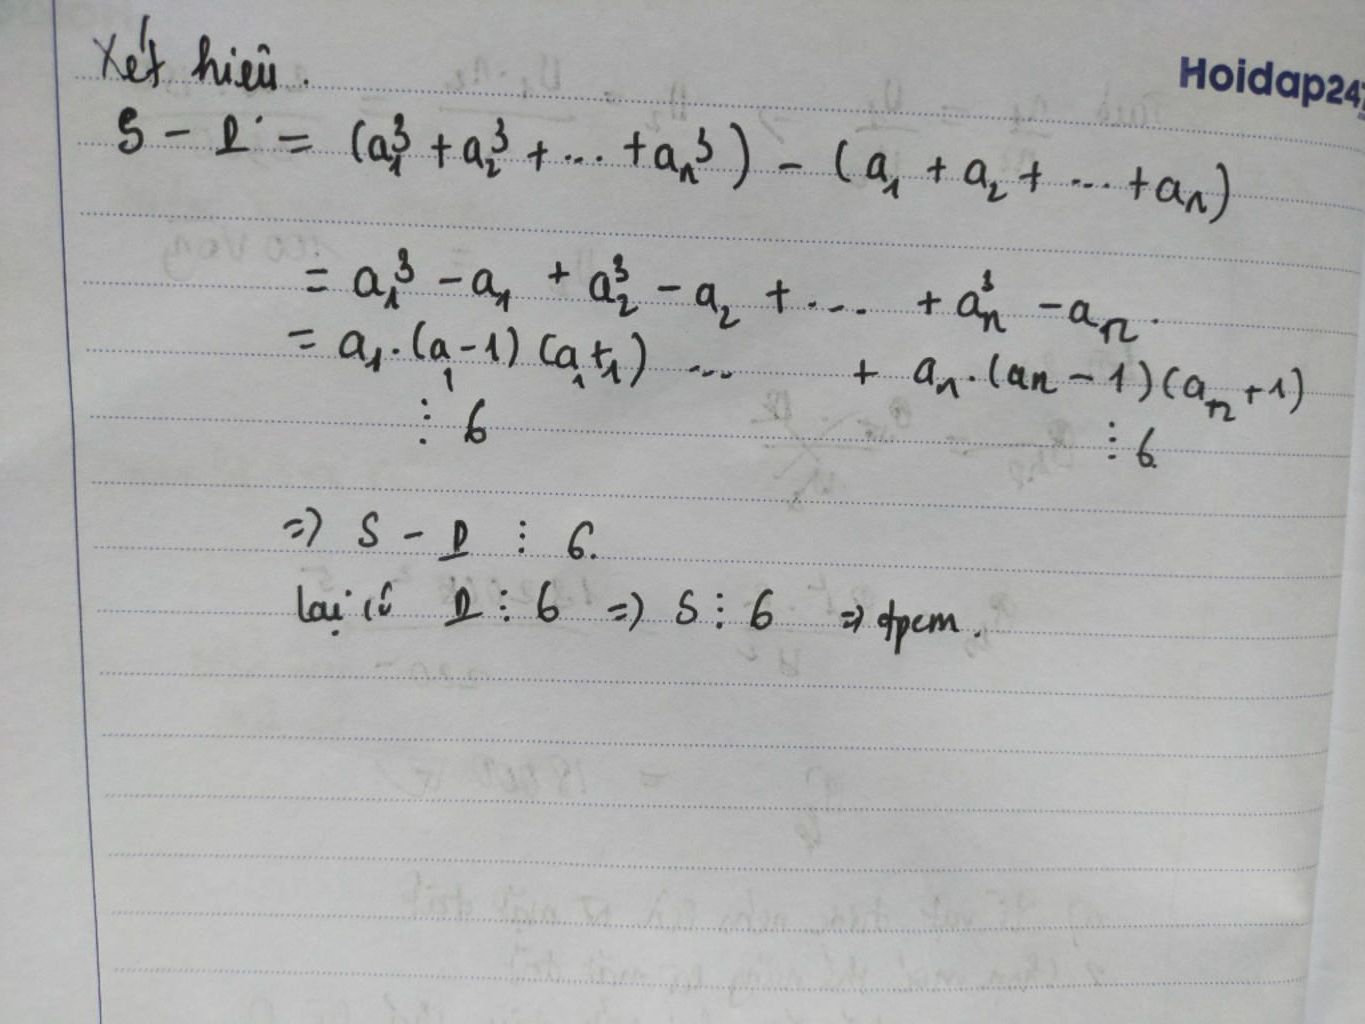 Xét hiệu.
Hoidap247
S - D = (a₁³ + a₂³ + ... + aₙ³) - (a₁ + a₂ + ... + aₙ)
= a₁³ - a₁ + a₂³ - a₂ + .... + aₙ³ - aₙ.
= a₁.(a₁-1)(a₁+1) ... + aₙ.(aₙ-1)(aₙ+1)
⋮ 6 ⋮ 6
=> S - D ⋮ 6.
lại có D ⋮ 6 => S ⋮ 6 => đpcm.